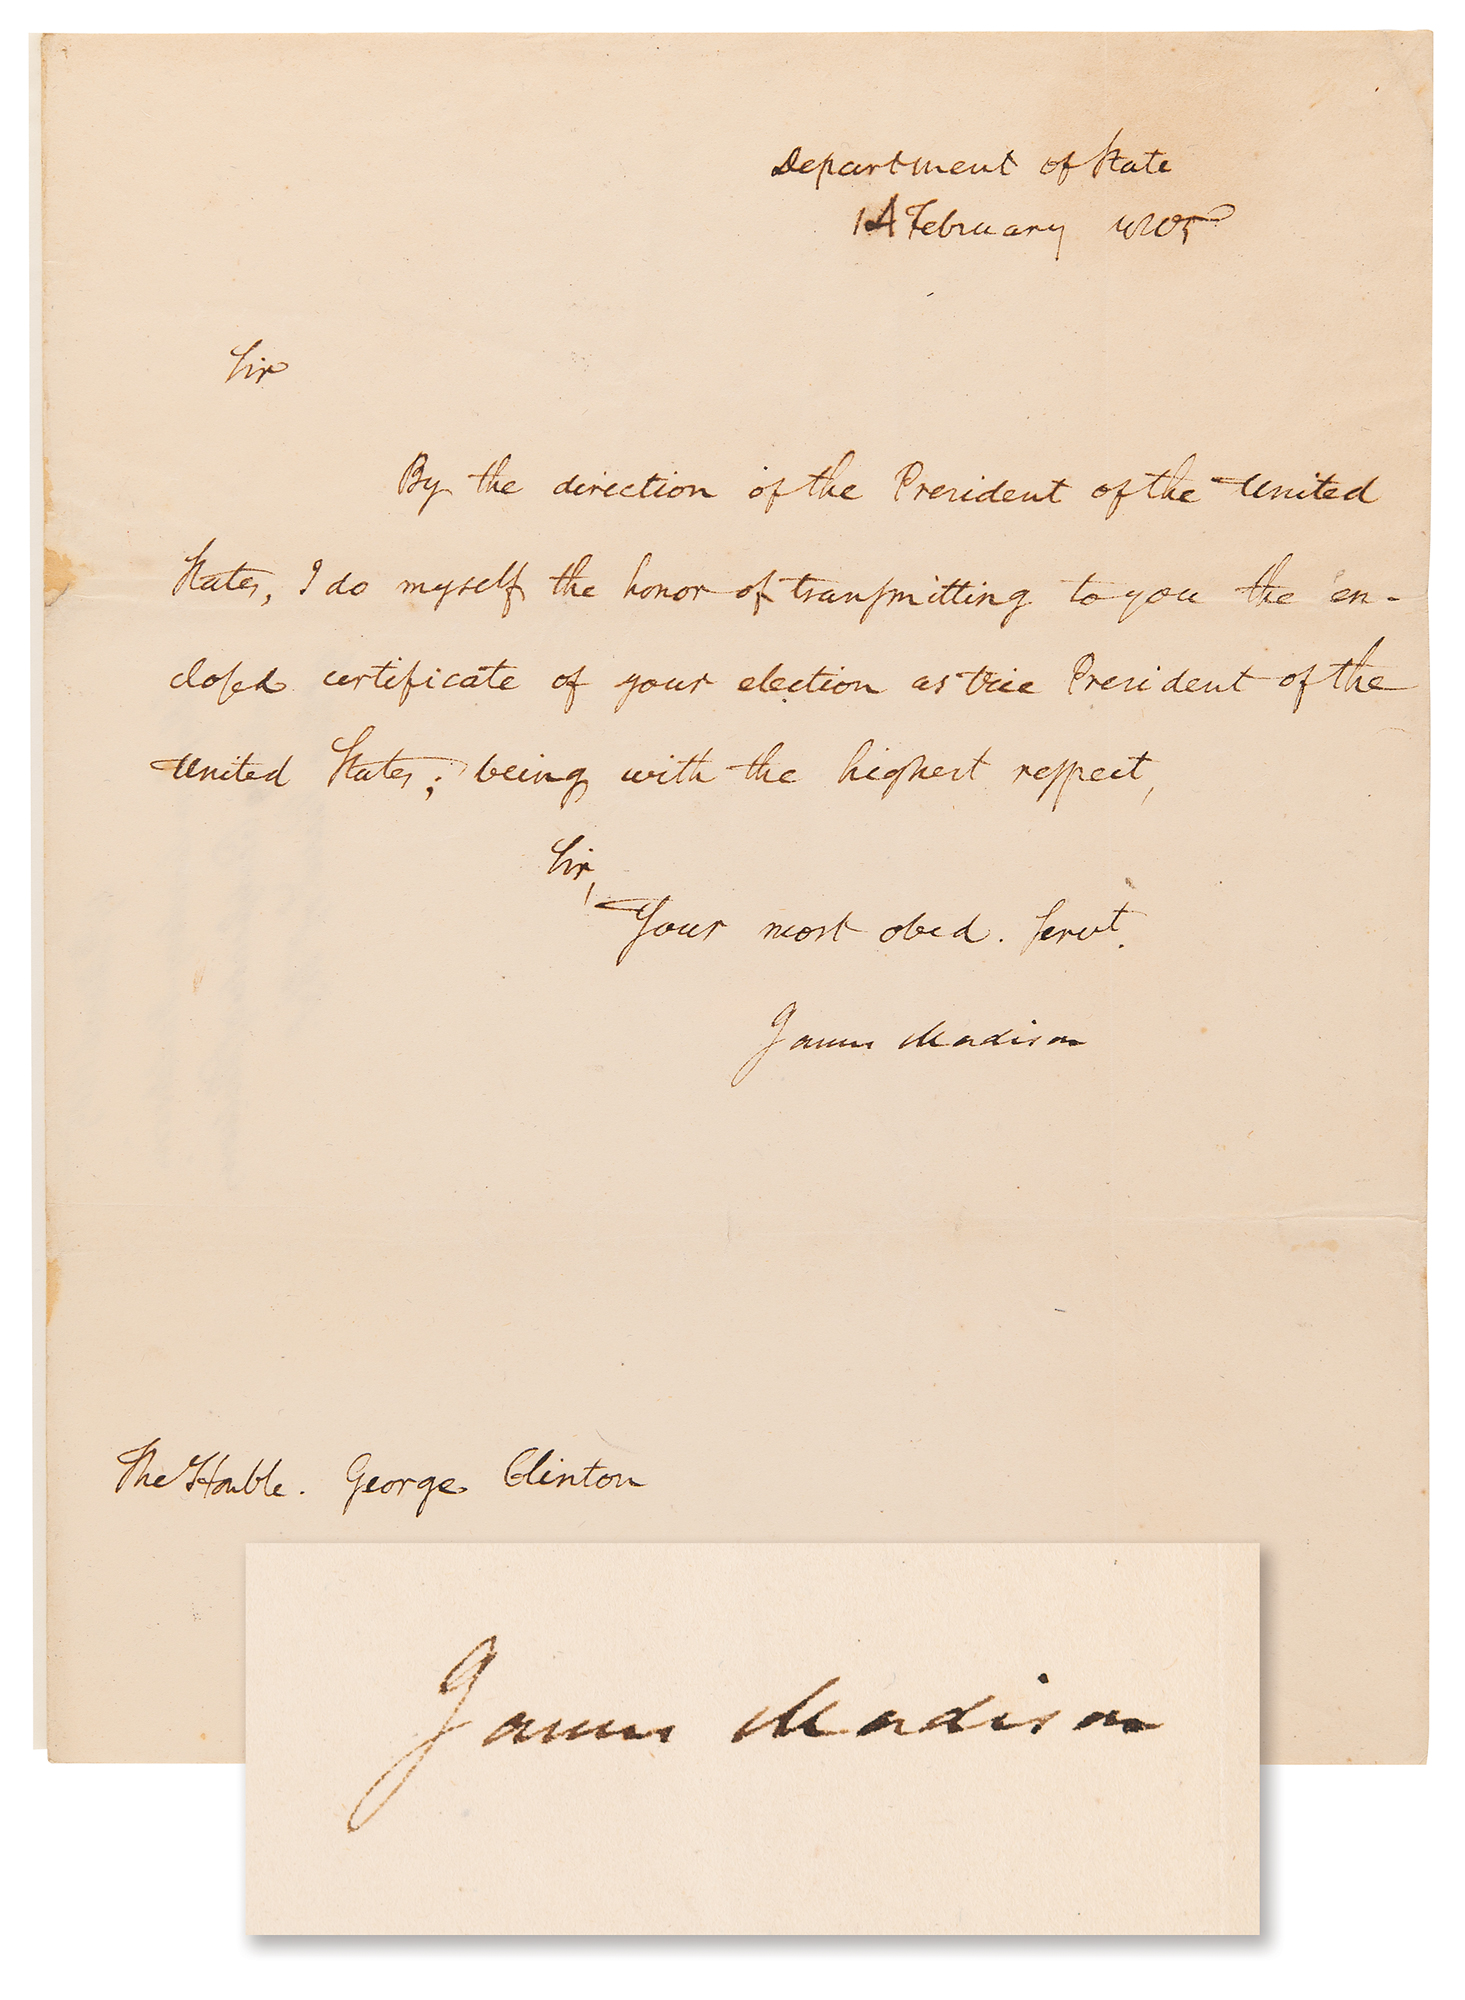 Department of State
14 February 1805
Sir
By the direction of the President of the United
States, I do myself the honor of transmitting to you the en-
closed certificate of your election as Vice President of the
United States; being with the highest respect,
Sir,
Your most obed. servt.
James Madison
The Honble. George Clinton
James Madison